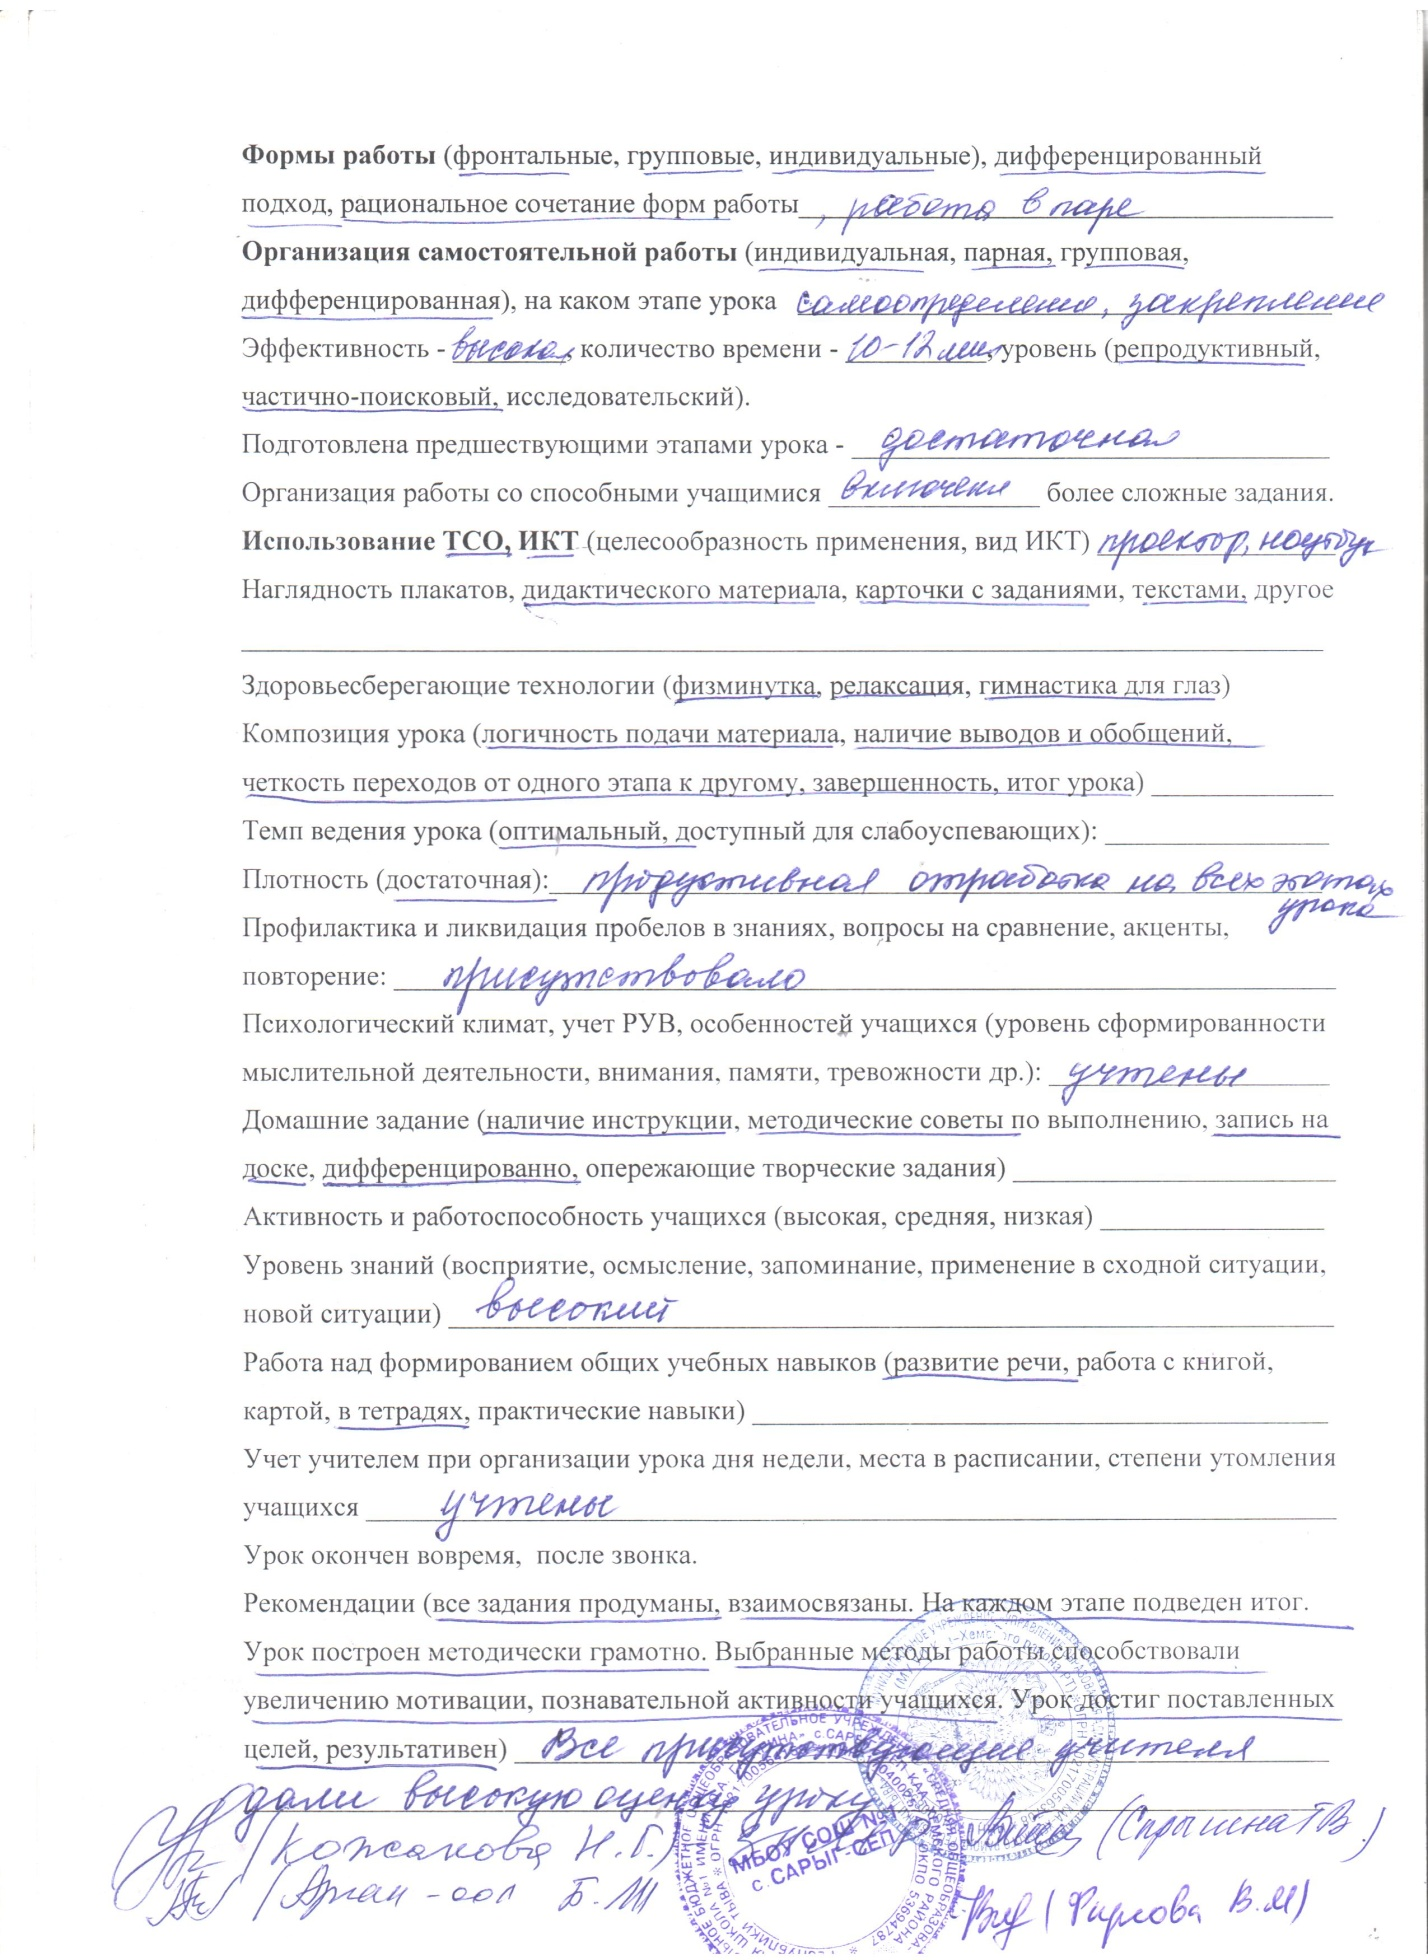 Формы работы (фронтальные, групповые, индивидуальные), дифференцированный
подход, рациональное сочетание форм работы, работа в паре
Организация самостоятельной работы (индивидуальная, парная, групповая,
дифференцированная), на каком этапе урока самоопределение, закрепление
Эффективность - высокая, количество времени - 10-12 мин, уровень (репродуктивный,
частично-поисковый, исследовательский).
Подготовлена предшествующими этапами урока - достаточная
Организация работы со способными учащимися включены более сложные задания.
Использование ТСО, ИКТ (целесообразность применения, вид ИКТ) проектор, ноутбук
Наглядность плакатов, дидактического материала, карточки с заданиями, текстами, другое
Здоровьесберегающие технологии (физминутка, релаксация, гимнастика для глаз)
Композиция урока (логичность подачи материала, наличие выводов и обобщений,
четкость переходов от одного этапа к другому, завершенность, итог урока)
Темп ведения урока (оптимальный, доступный для слабоуспевающих):
Плотность (достаточная): продуктивная отработка на всех этапах
урока
Профилактика и ликвидация пробелов в знаниях, вопросы на сравнение, акценты,
повторение: присутствовало
Психологический климат, учет РУВ, особенностей учащихся (уровень сформированности
мыслительной деятельности, внимания, памяти, тревожности др.): учтены
Домашние задание (наличие инструкции, методические советы по выполнению, запись на
доске, дифференцированно, опережающие творческие задания)
Активность и работоспособность учащихся (высокая, средняя, низкая)
Уровень знаний (восприятие, осмысление, запоминание, применение в сходной ситуации,
новой ситуации) высокий
Работа над формированием общих учебных навыков (развитие речи, работа с книгой,
картой, в тетрадях, практические навыки)
Учет учителем при организации урока дня недели, места в расписании, степени утомления
учащихся учтены
Урок окончен вовремя, после звонка.
Рекомендации (все задания продуманы, взаимосвязаны. На каждом этапе подведен итог.
Урок построен методически грамотно. Выбранные методы работы способствовали
увеличению мотивации, познавательной активности учащихся. Урок достиг поставленных
целей, результативен) Все присутствующие учителя
дали высокую оценку уроку
(Кожакова Н.Г.)
МБОУ СОШ №1
с. САРЫГ-СЕП
(Спрышна Т.В.)
(Аржаи-оол Б.Ш
(Фирсова В.М)